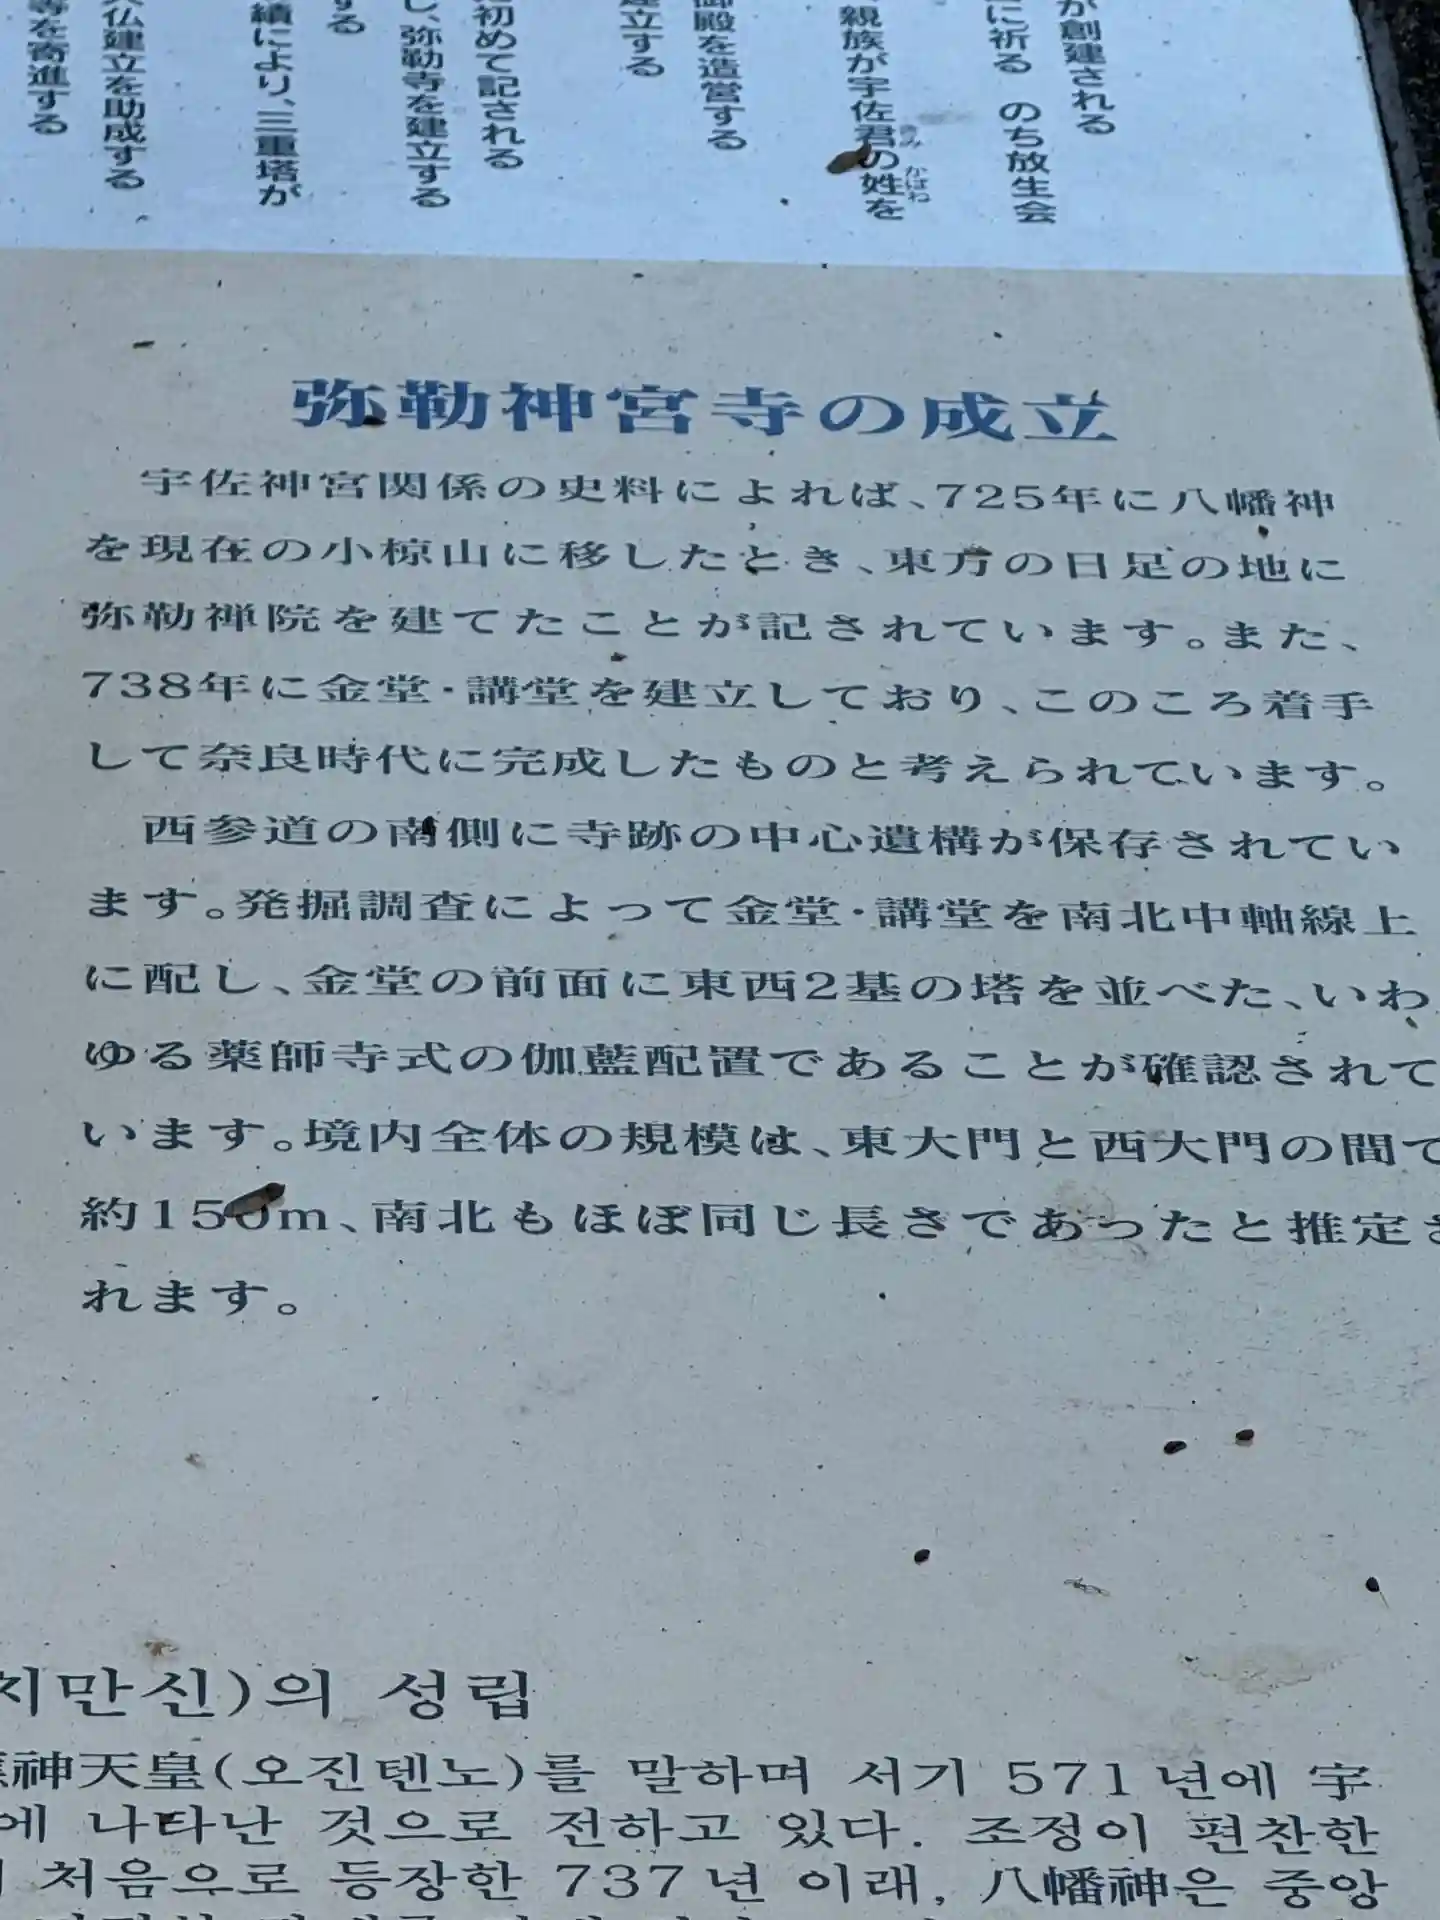 が創建される
に祈る のち放生会
親族が宇佐君の姓を
きみ かばね
御殿を造営する
建立する
初めて記される
し、弥勒寺を建立する
する
績により、三重塔が
仏建立を助成する
等を寄進する
弥勒神宮寺の成立
宇佐神宮関係の史料によれば、725年に八幡神
を現在の小椋山に移したとき、東方の日足の地に
弥勒禅院を建てたことが記されています。また、
738年に金堂・講堂を建立しており、このころ着手
して奈良時代に完成したものと考えられています。
西参道の南側に寺跡の中心遺構が保存されてい
ます。発掘調査によって金堂・講堂を南北中軸線上
に配し、金堂の前面に東西2基の塔を並べた、いわ
ゆる薬師寺式の伽藍配置であることが確認されて
います。境内全体の規模は、東大門と西大門の間で
約150m、南北もほぼ同じ長さであったと推定さ
れます。
치만신)의 성립
神天皇(오진텐노)를 말하며 서기 571년에 宇
에 나타난 것으로 전하고 있다. 조정이 편찬한
처음으로 등장한 737년 이래, 八幡神은 중앙